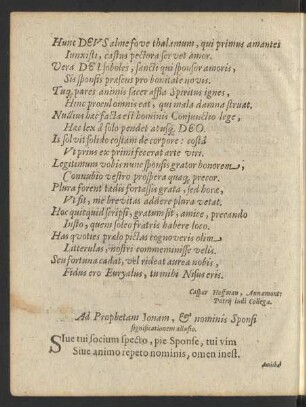 Hunc DEUS alme fove thalamum, qui primus amantes
Iunxisti, castus pectora servet amor.
Vera DEI soboles, sancti qui sponsor amoris,
Sis sponsis præsens pro bonitate novis.
Tuq́; pares animis sacer affla Spiritus ignes,
Hinc procul omnis eat, qui mala damna struat.
Nudius hæc facta est hominis Conjunctio lege,
Hæc lex à solo pendet atq́; DEO.
Is solvit solido costam de corpore: costâ
Ut prius ex primi fecerat arte viri.
Legitimum vobis nunc sponsi grator honorem,
Connubio vestro prospera quæq́; precor.
Plura forent tædis fortassis grata, sed horæ,
Ut sit, me brevitas addere plura vetat.
Hoc quitquid scripsi, gratum sit, amice, precando
Iusto, quem soleo fratris habere loco.
Has quoties prælo pictas cognoveris olim
Litterulas, nostri commeminisse velis.
Seu fortuna cadat, vel rideat aurea nobis,
Fidus ero Euryalus, tu mihi Nisus eris.
Caspar Hoffman, Annamont:
Patriæ ludi Collega.
Ad Prophetam Jonam, & nominis Sponsi
significationem allusio.
Sive tui socium specto, pie Sponse, tui vim
Sive animo repeto nominis, omen inest.